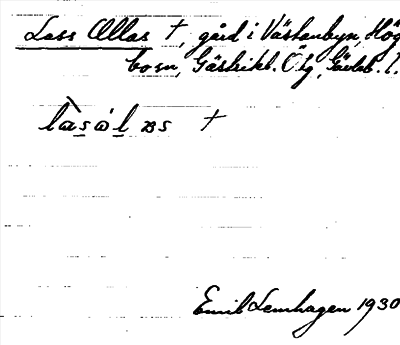 Lass Ollas †, gård i Västanbyn, Hög
bosn, Gästrikl. Ötg, Gävleb. l.
làsol as †
Emil Lemhagen 1930